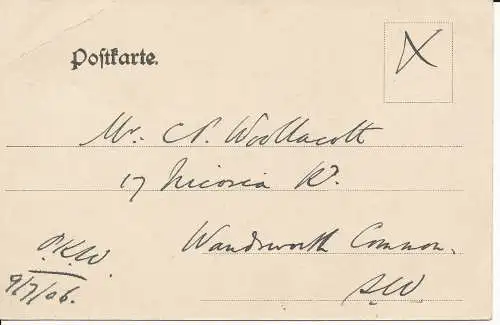 Postkarte.
X
Mr. C. P. Woollacott
17 Nicosia Rd.
Wandsworth Common.
S.W.
P.K.W.
9/7/06.